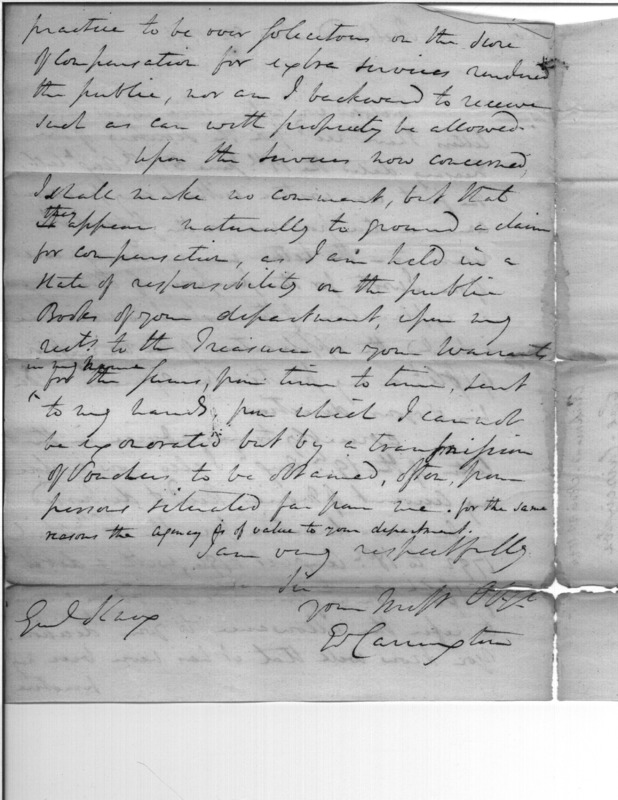 practice to be over solicitous on the score
of Compensation for extra services rendered
the public, nor am I backward to receive
such as can with propriety be allowed.
Upon the services now concerned,
I shall make no comment, but that
they appear naturally to ground a claim
for compensation, as I am held in a
state of responsibility on the public
Books of your department, upon my
rects. to the Treasurer on your Warrants
in my name
for the sums, from time to time, sent
to my hands, from which I cannot
be exonorated but by a transmission
of Vouchers to be obtained, often, from
persons situated far from me. for the same
reasons the agency is of value to your department.
I am very respectfully
Sir
your Most Obt
Genl Knox
Ed Carrington